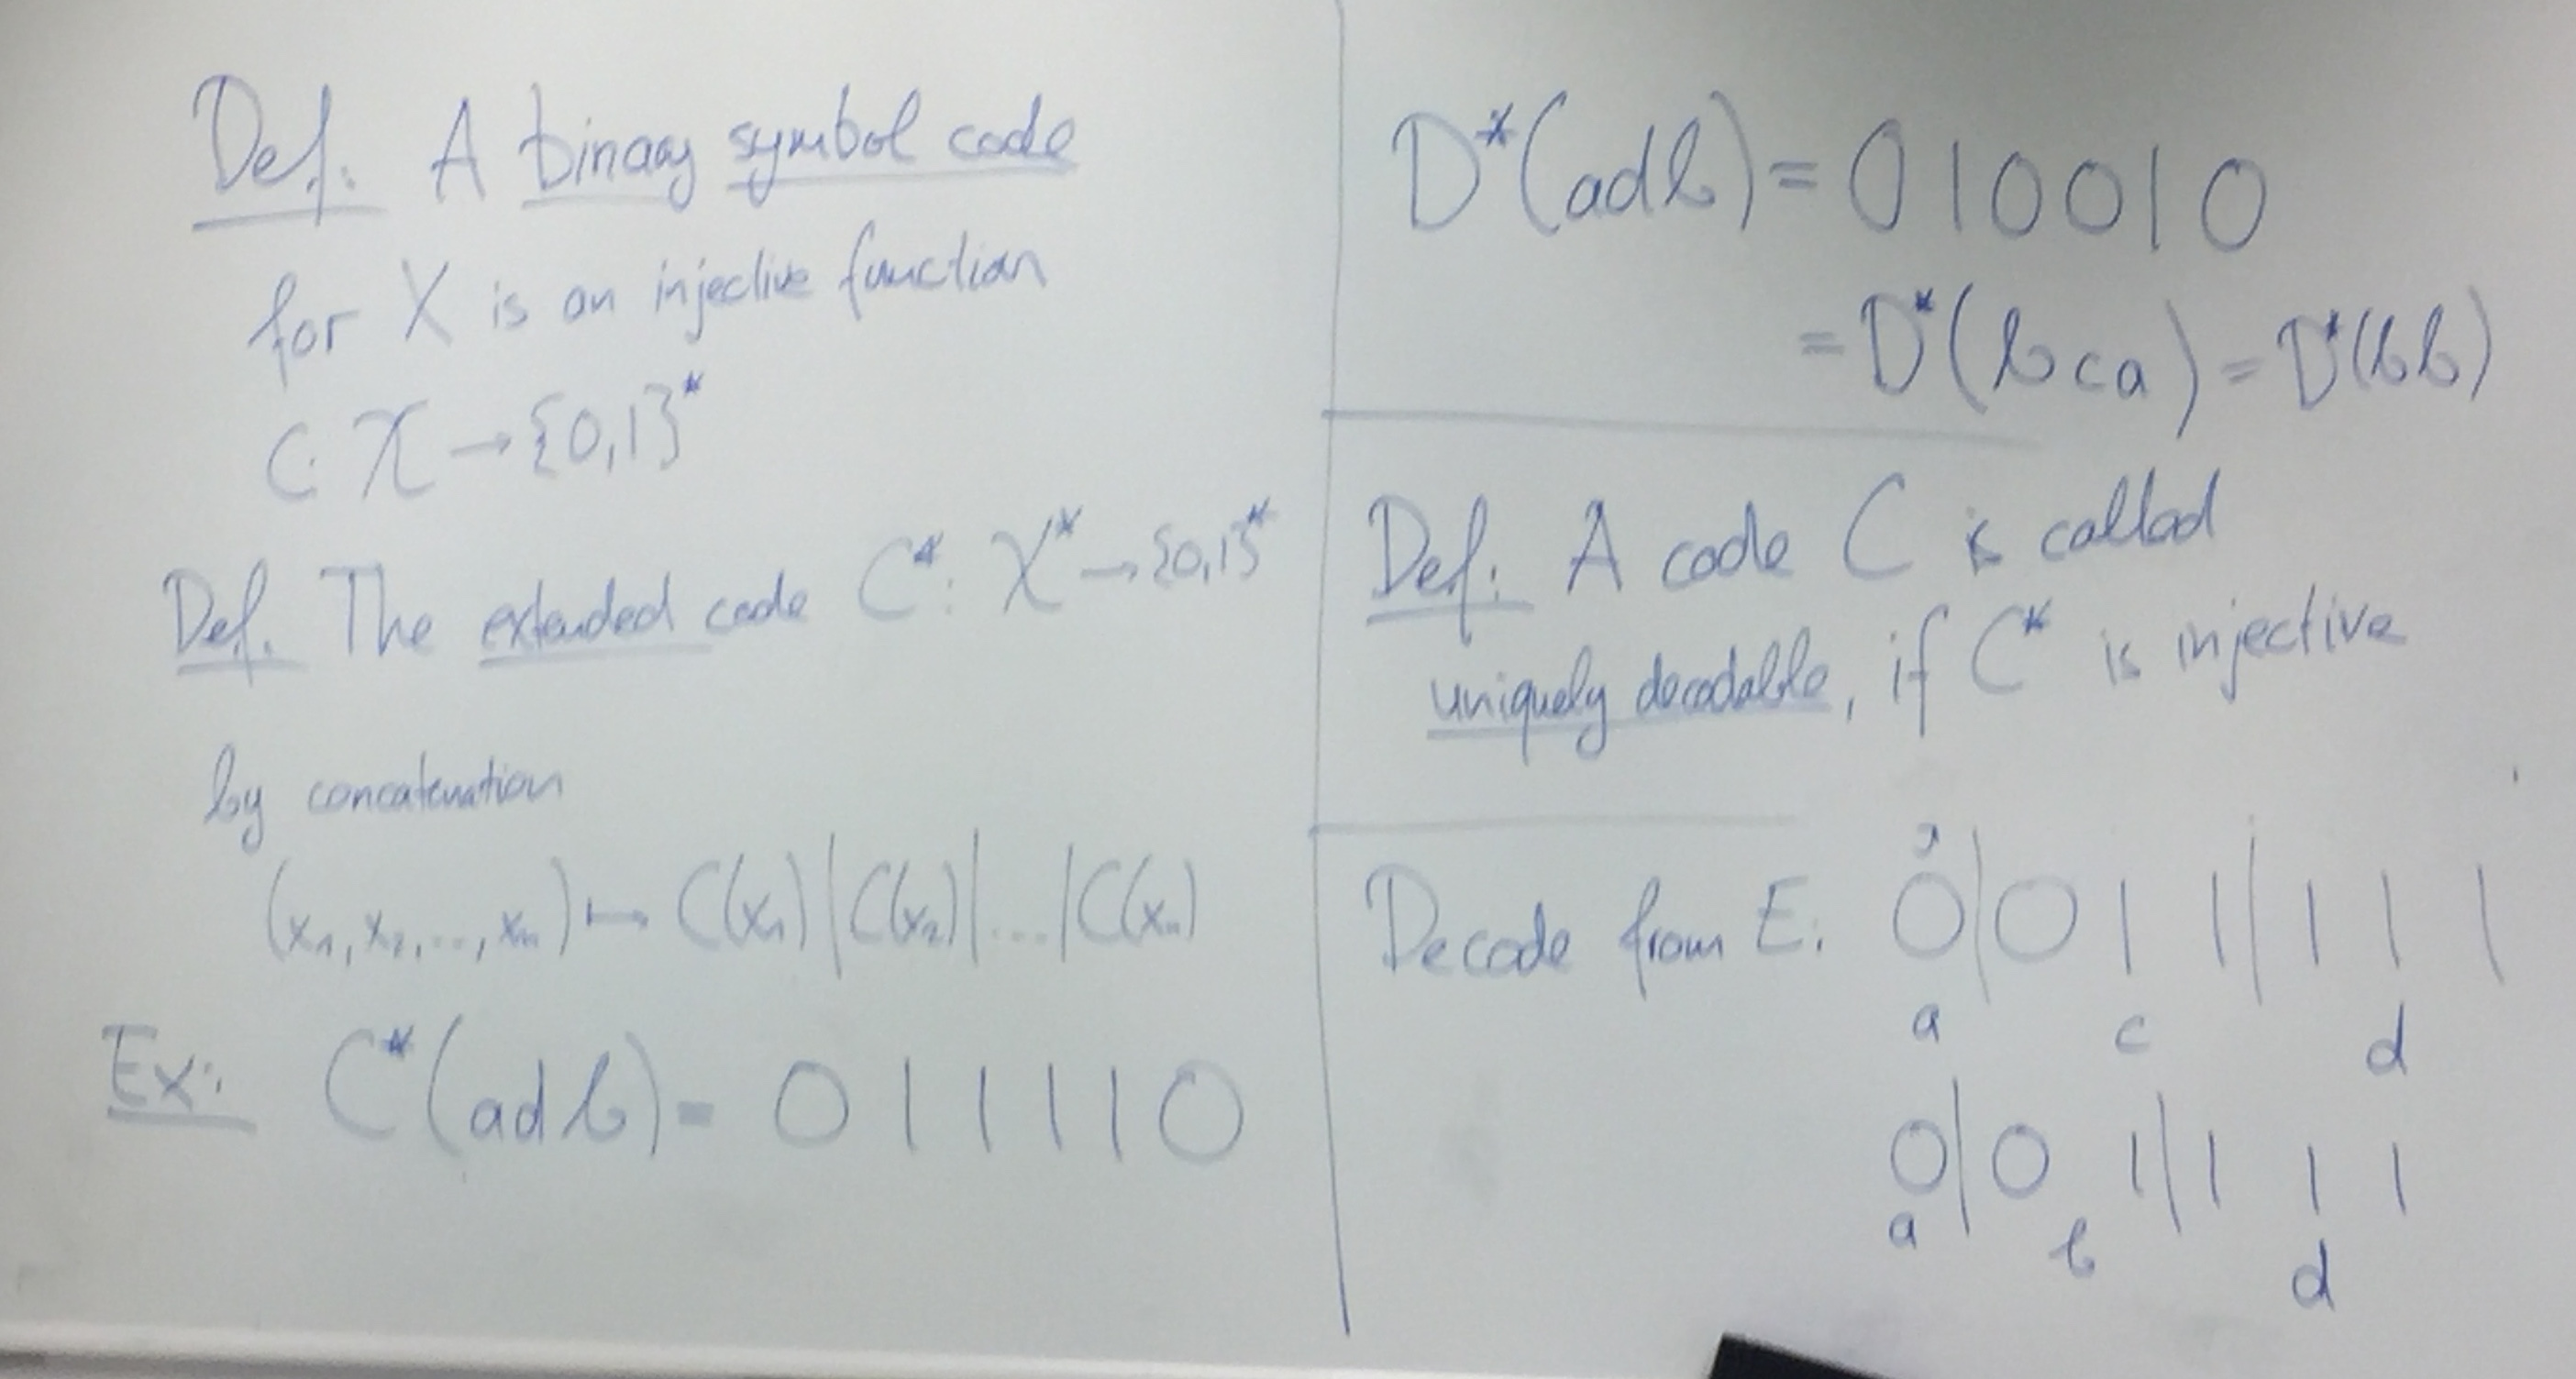 Def: A binary symbol code
for X is an injective function
C: 𝒳 → {0,1}*
Def. The extended code C*: 𝒳* → {0,1}*
by concatenation
(x₁, x₂, ..., xₙ) ↦ C(x₁)|C(x₂)|...|C(xₙ)
Ex: C*(adb) = 011110
D*(adb) = 010010
= D*(bca) = D*(bb)
Def: A code C is called
uniquely decodable, if C* is injective
Decode from E: 0|011|111
a c d
0|01|111
a b d